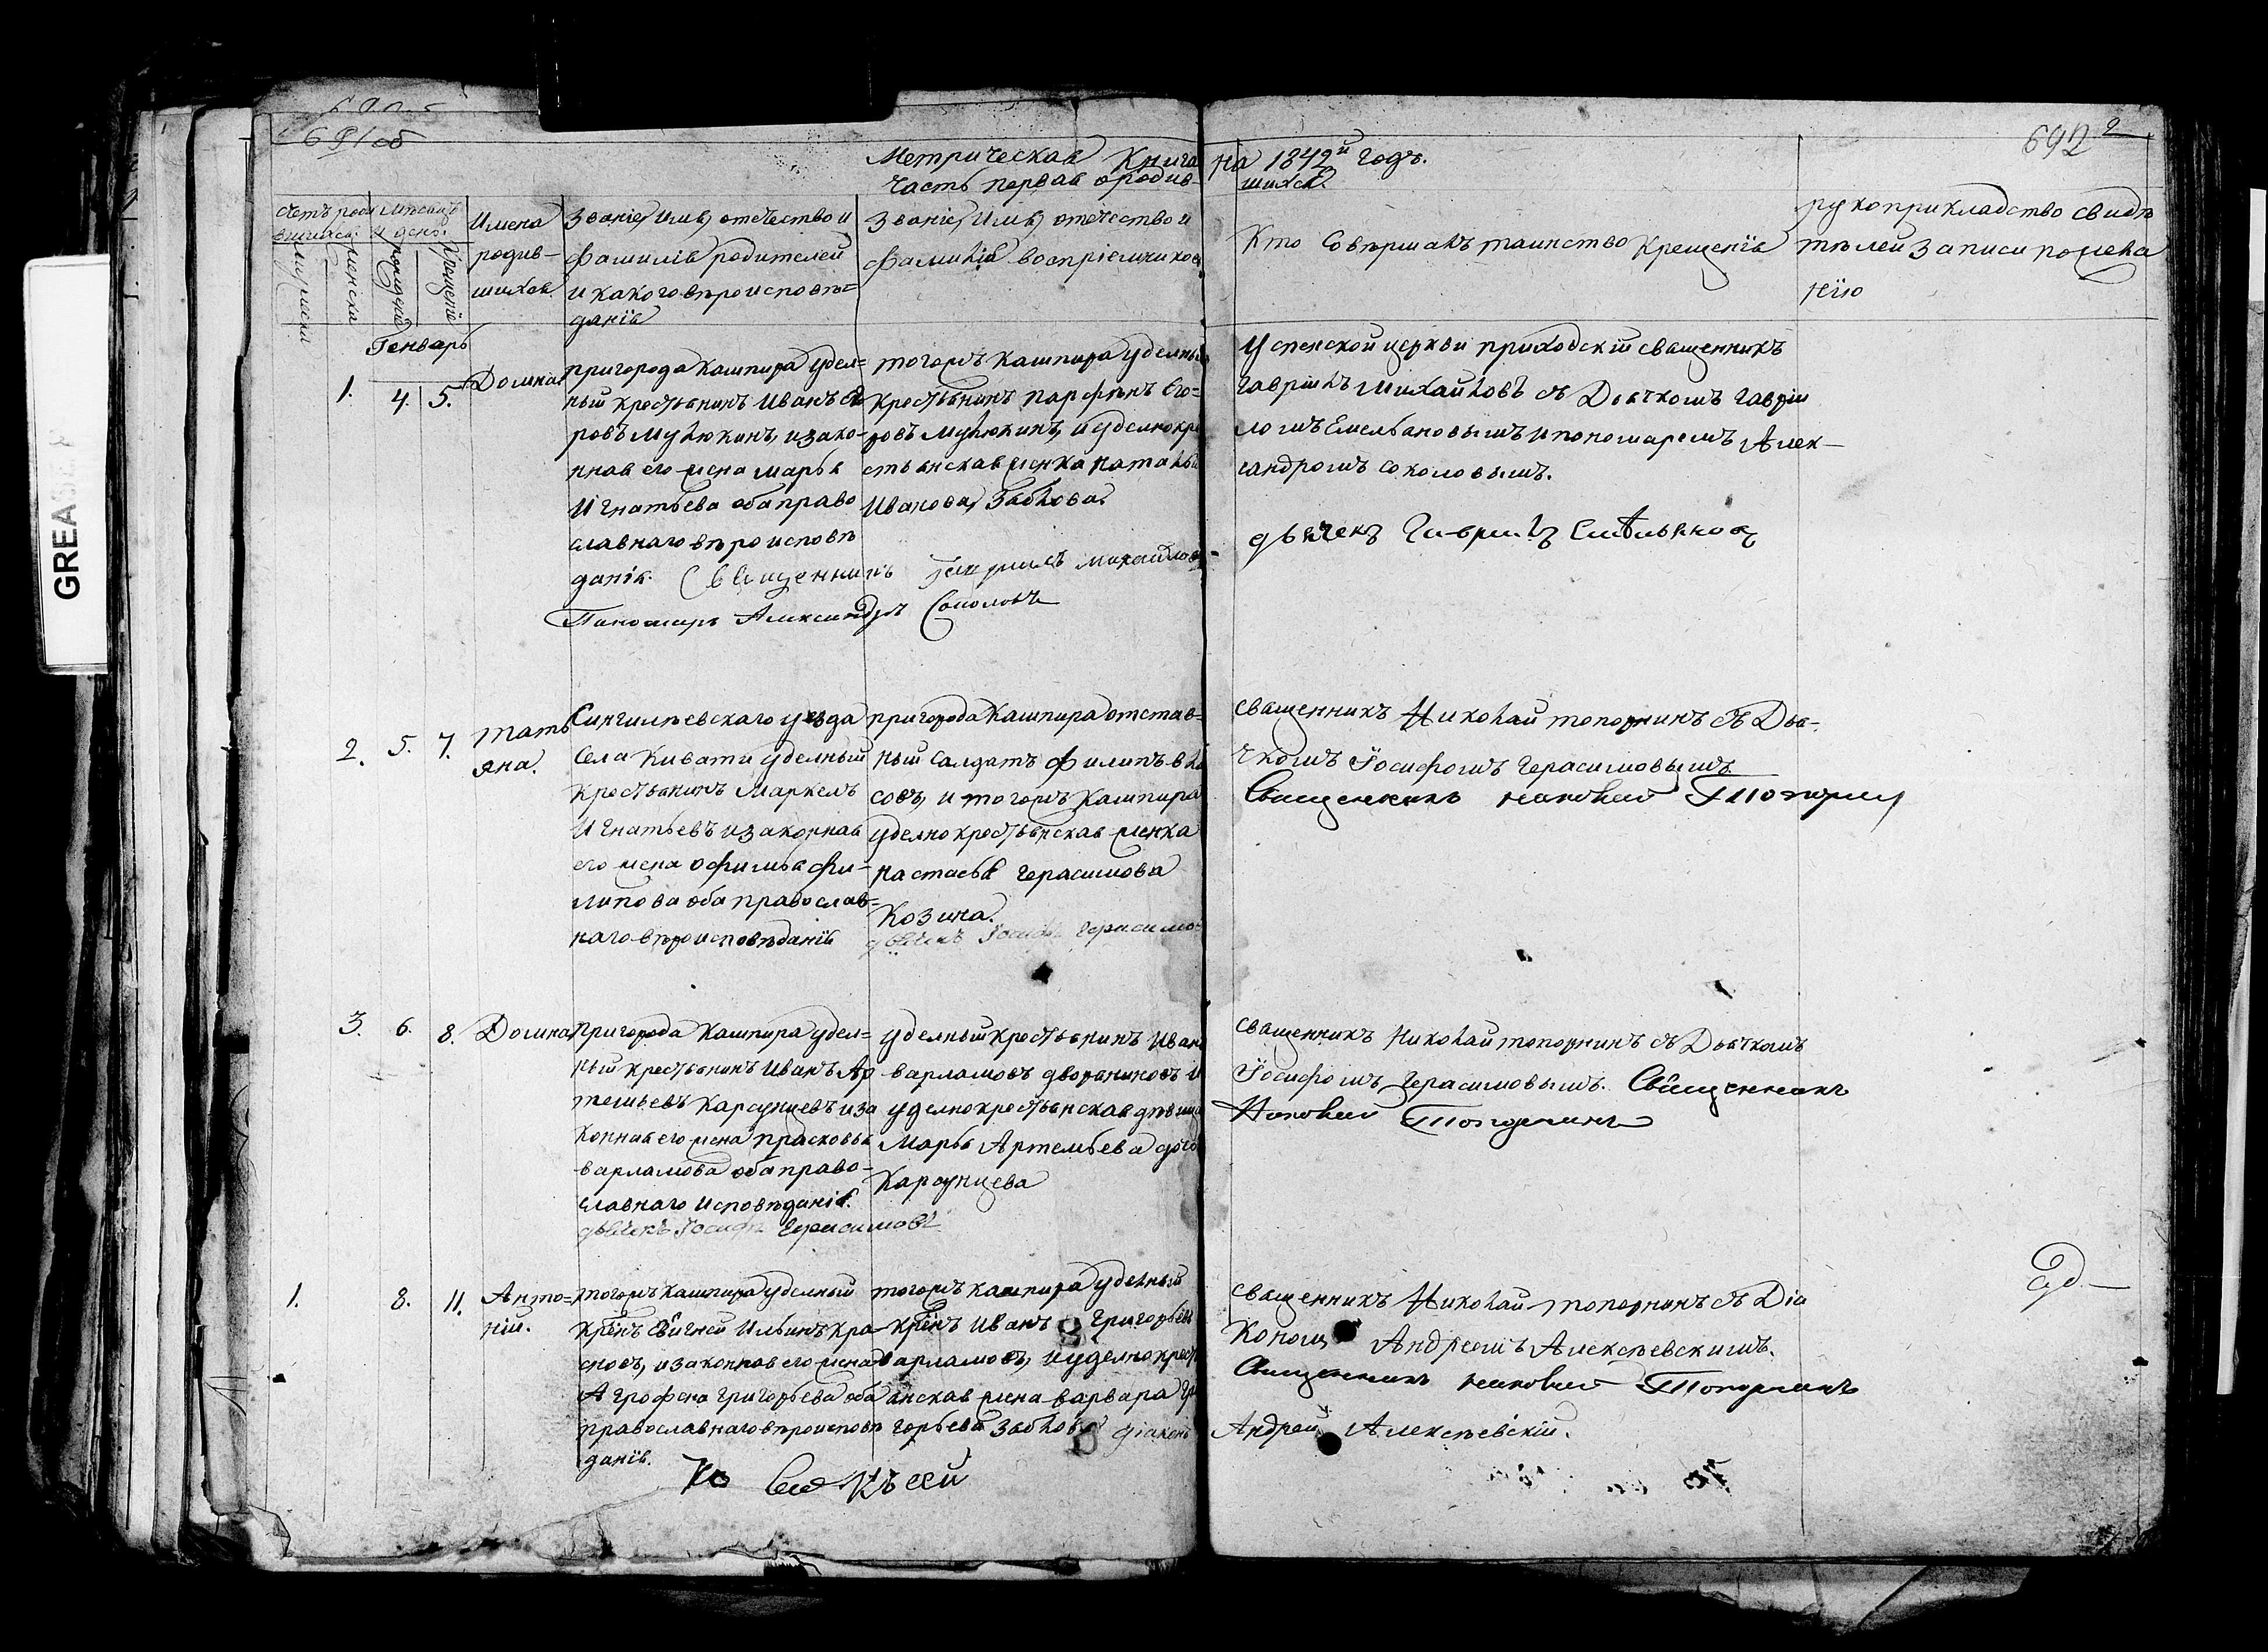 691об
692 2
Метрическая Книга на 1842й Годъ.
Часть первая ородив-шихся.
Счетъ роди
вшихся.
Мѣсяцъ
и день.
мужиски
женска
рожденiя
Крещенiе
Имена
родив-
шихся
Званiе, Имя, отечество и
фамилiя родителей
и какого вѣроисповѣ=
данiя
Званiе, Имя, отечество и
фамилiя воспрiемников
Кто Совѣршалъ таинство Крещенiя
рукоприкладство свидѣ
тѣлей записи пожела
нiю
Генварь
1. 4. 5. Домна
пригорода Кашпира удел=
ный крестьянинъ Иванъ Его
ровъ Мулюкинъ, изако-
нная его жена Марья
Игнатьева оба право
славнаго вѣроисповѣ
данiя.
тогожъ Кашпира удельный
Крестьянинъ Парфенъ Его=
ровъ Мулюкинъ, и уделнокре
стьянская женка Наталья
Иванова, Зяблова.
Священникъ Гаврiилъ Михайловъ
Пономарь Александръ Соколовъ
Успенской церкви приходскiй священникъ
Гаврiилъ Михайловъ съ Дьячкомъ Гаврiи
ломъ Емельяновымъ и пономаремъ Алек-
сандромъ Соколовымъ.
дьячекъ Гаврiилъ Емельяновъ
2. 5. 7. Тать
яна.
Сингилѣевскаго уѣзда
Села Кивати уделный
Крестьянинъ Маркелъ
Игнатьевъ изаконная
его жена Офимья Фи-
липова оба православ=
наго вѣроисповѣданiя
пригорода Кашпира отстав=
ный Салдатъ Филипъ Вла
совъ, и тогожъ Кашпира
уделнокрестьянская женка
Настасья Герасимова
Козина.
дьячекъ Iосифъ Герасимов
священникъ Николай Топорнинъ съ Дья-
чкомъ Iосифомъ Герасимовымъ
Священникъ Николай Топорнин
3. 6. 8. Домна
Пригорода Кашпира удел=
ный крестьянинъ Иванъ Ар
темьевъ Карсунцевъ иза
конная его жена Прасковья
Варламова оба право-
славнаго исповѣданiя.
дьячекъ Iосифъ Герасимовъ
уделный крестьянинъ Иван
Варламовъ Дворениновъ и
уделнокрестьянская дѣвица
Марья Артемьева дочь
Карсунцева
священникъ Николай Топорнинъ съ Дьячкомъ
Iосифомъ Герасимовымъ. Священникъ
Николай Топорнинъ
1. 8. 11. Анто=
нiй.
тогожъ Кашпира уделный
Крѣнъ Евигней Ильинъ Кра-
сновъ, изаконная его жена
Агрофена Григорьева оба
православнаго вѣроисповѣ
данiя.
тогожъ Кашпира удельный
Крѣнъ Иванъ Григорьевъ
Варламовъ, и уделнокресть
янская жена Варвара Гри
горьева Зяблова дiаконъ
священникъ Николай Топорнинъ съ Дiа
кономъ Андреемъ Алексѣевскимъ.
Священникъ Николай Топорнинъ
Андрей Алексѣевскiй.
GREASE